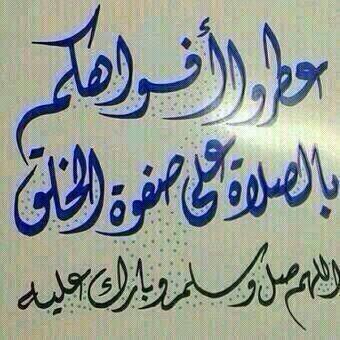 عطروا أفواهكم
بالصلاة على صفوة الخلق
اللهم صل وسلم وبارك عليه